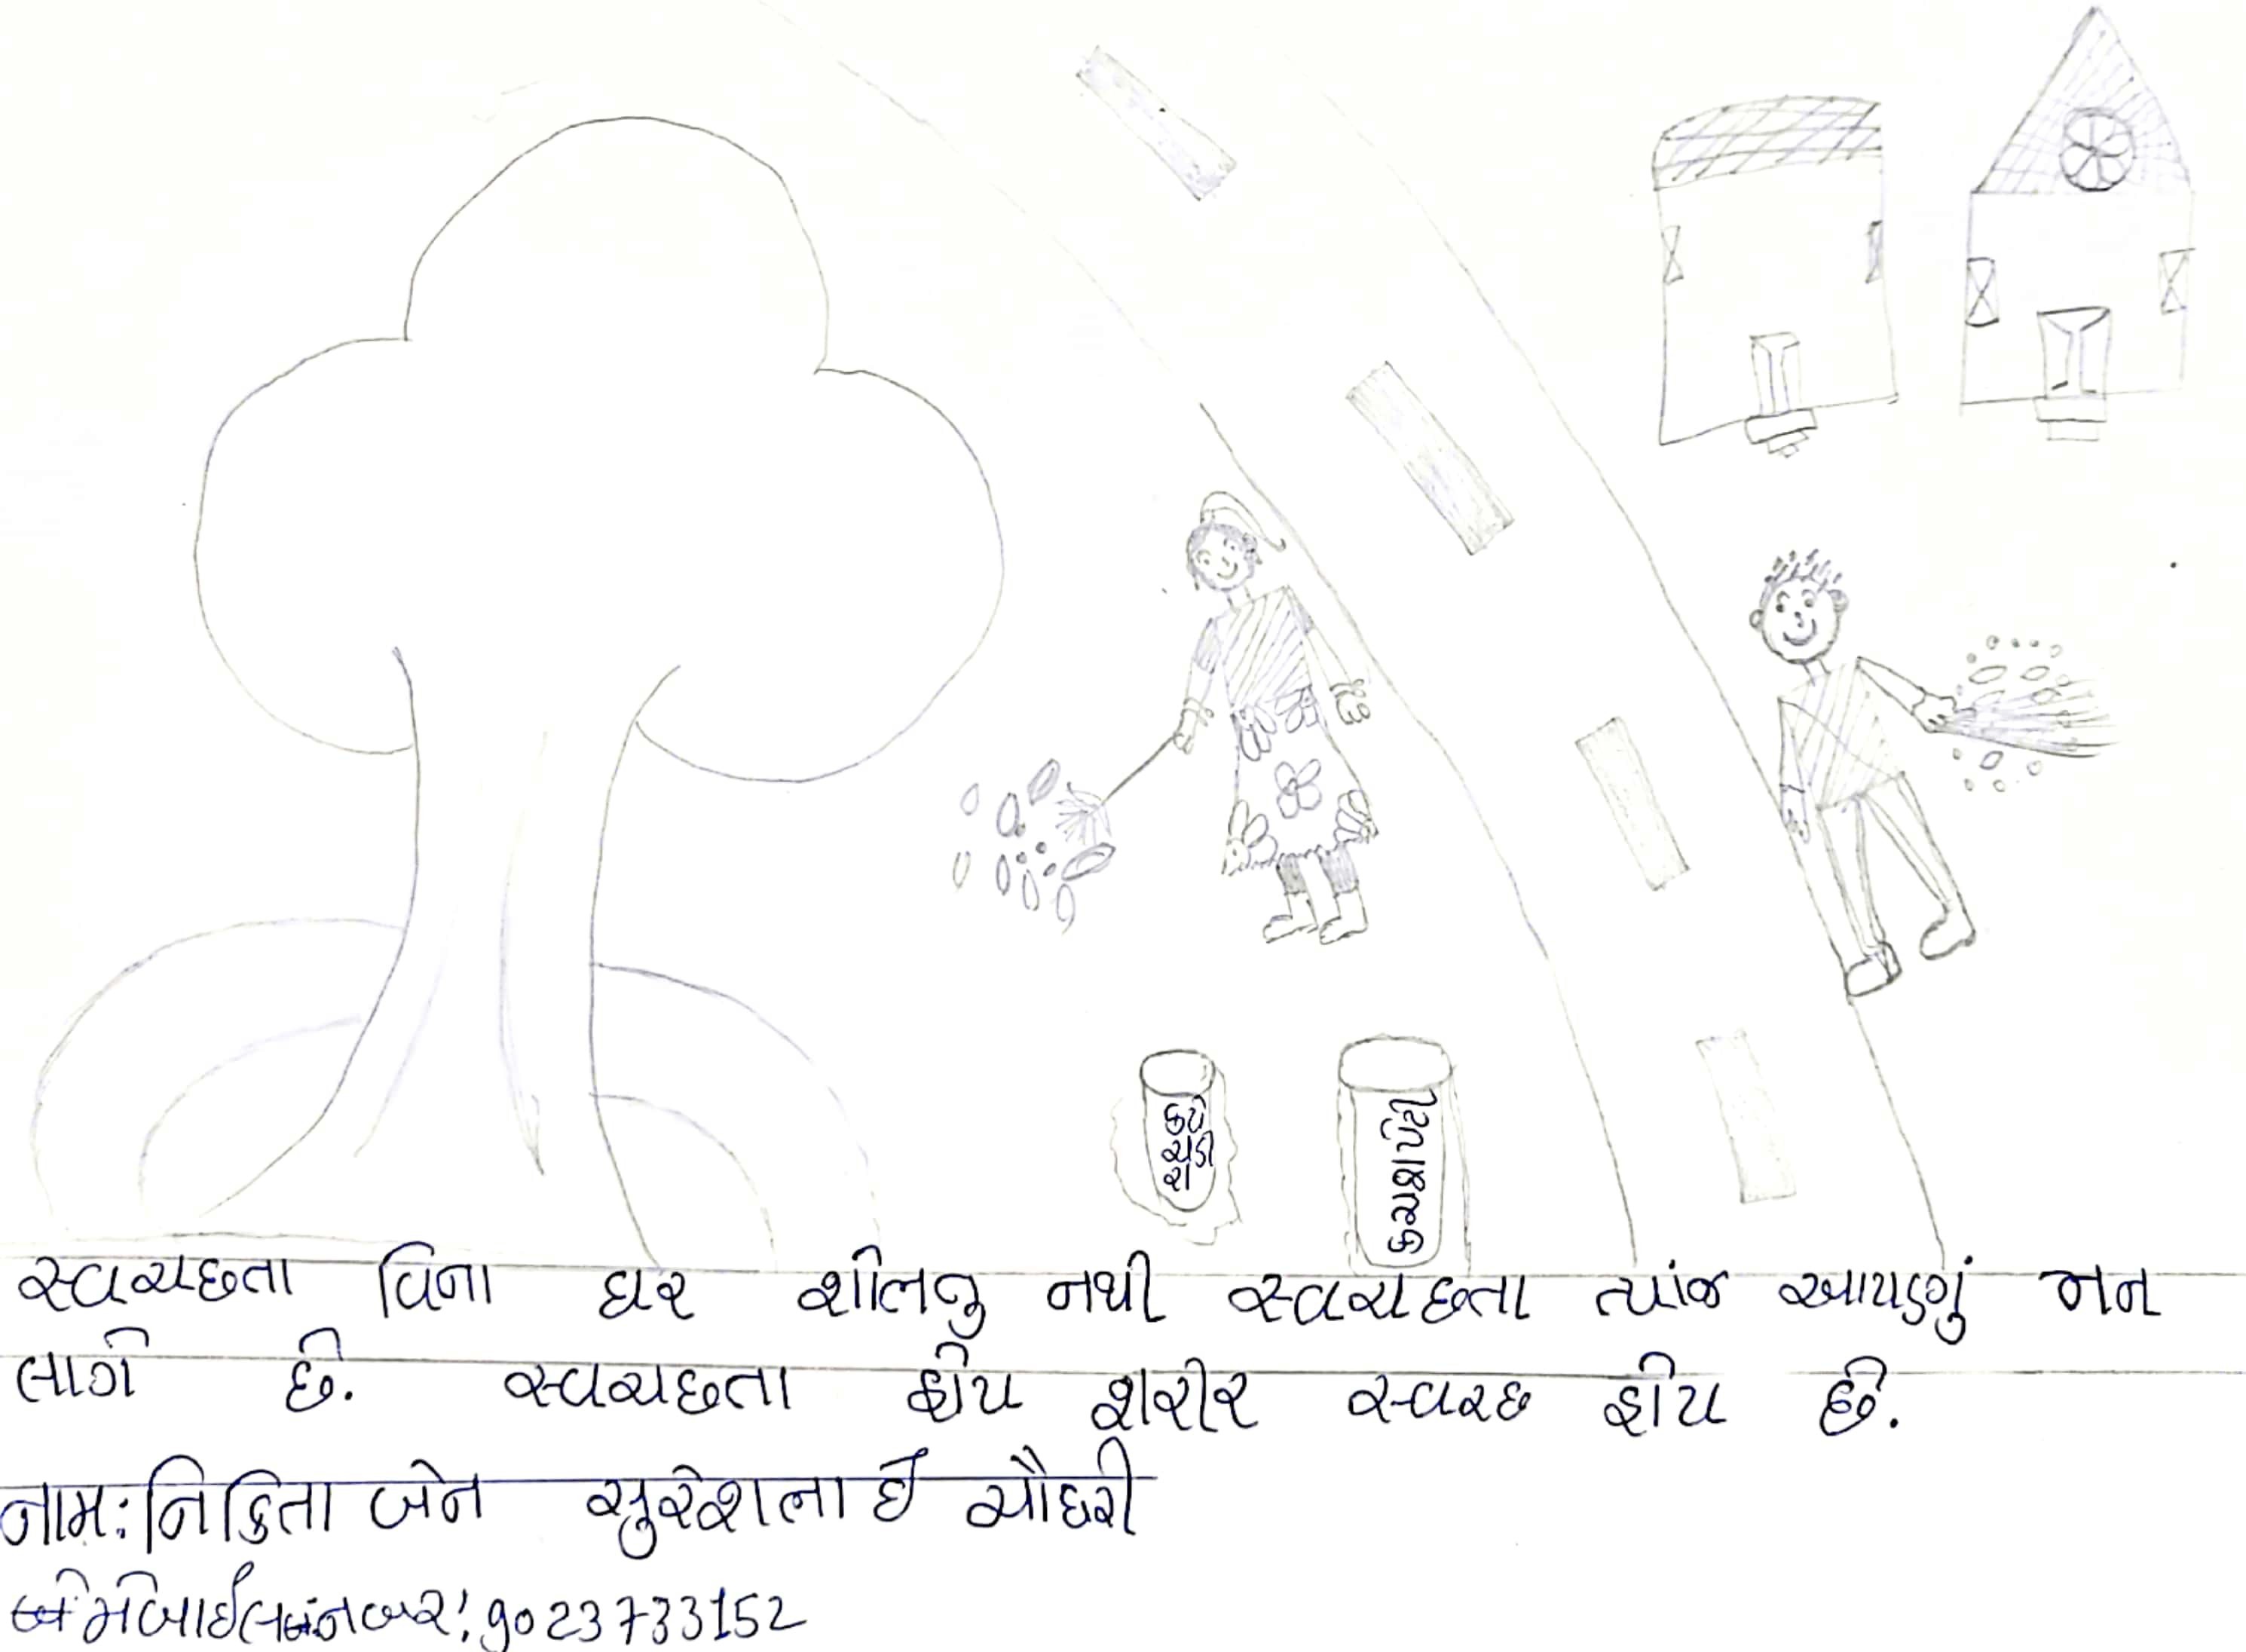 કચરાપેટી
સ્વચછતા વિના ઘર શોભિતુ નથી સ્વચછતા ત્યાંજ આપણું મન
લાગે છે. સ્વચછતા હોય શરીર સ્વચ્છ હોય છે.
નામ: નિકિતા બેન સુરેશભાઈ ચૌધરી
મોબાઈલ નબર: 9023733152